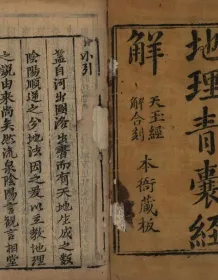 地理青囊經
解
天玉經
解合刻
本衙藏板
小引
蓋自河出圖洛出書而有天地生成之數
陰陽順逆之分地法因之爰以至數地理
之說由來尚矣然流泉陰陽言觀相